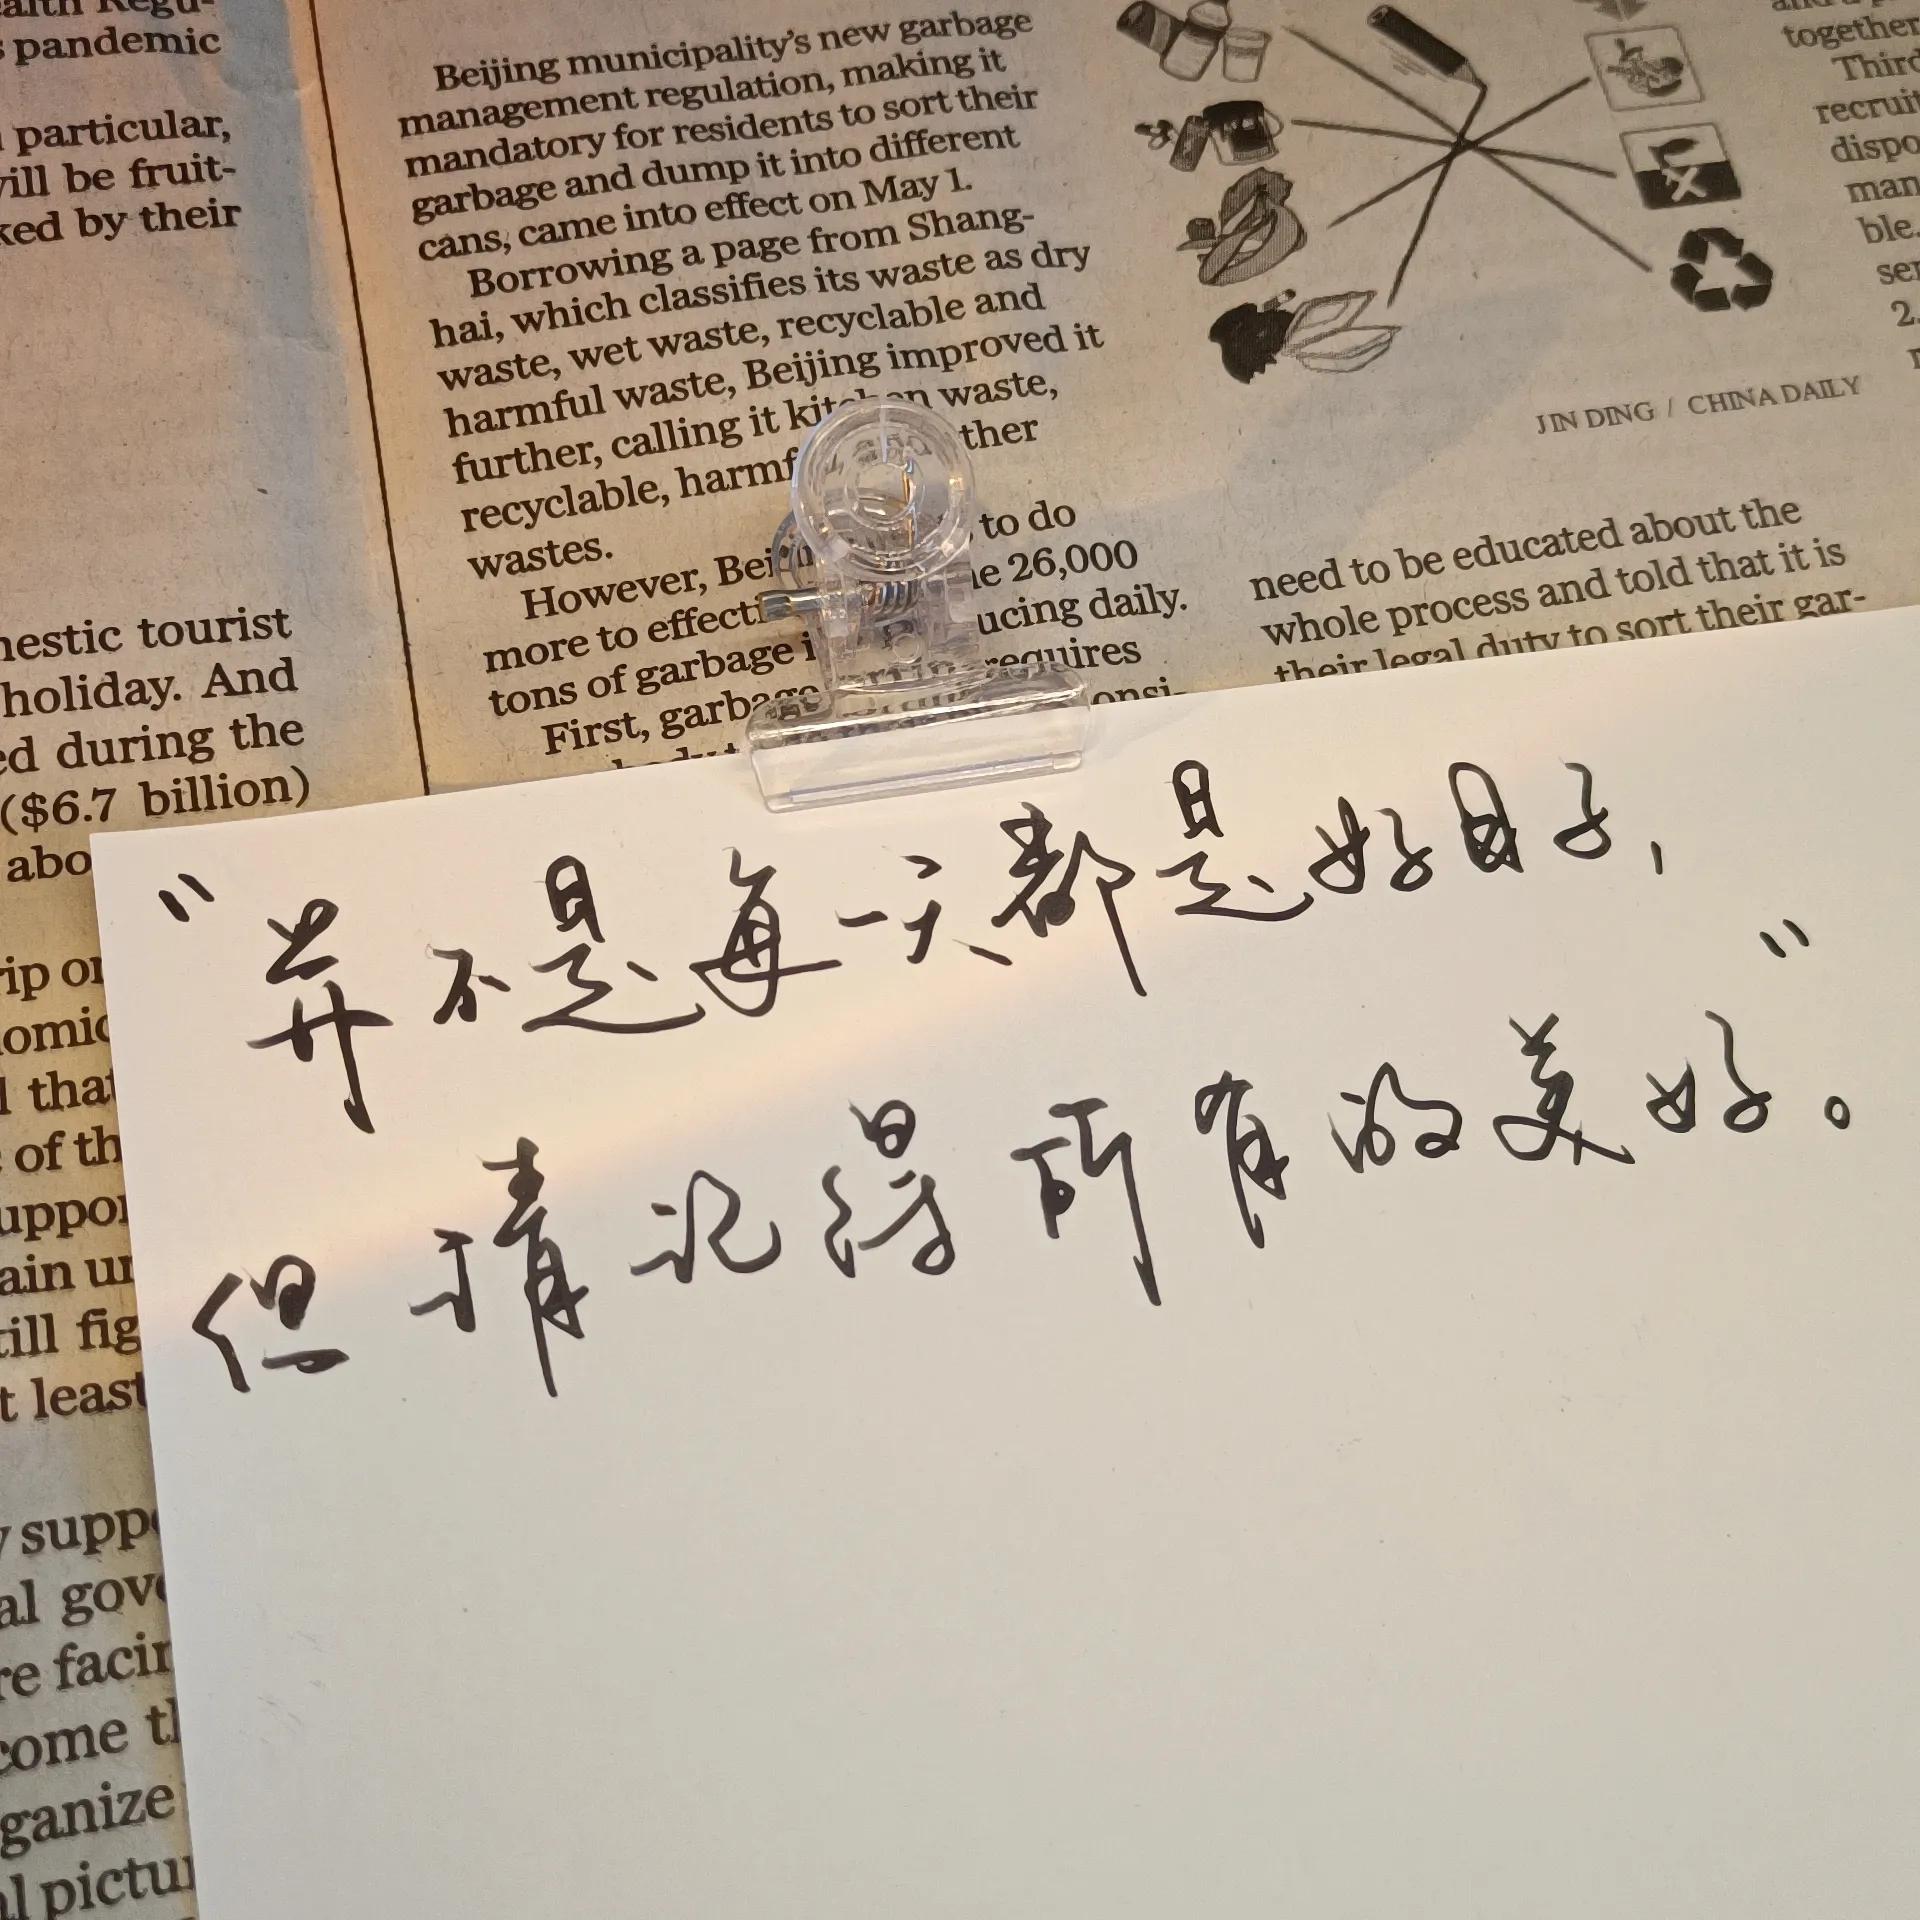 alth Regu-
s pandemic
particular,
will be fruit-
ked by their
mestic tourist
holiday. And
ed during the
($6.7 billion)
abo
rip or
nomic
l that
of th
suppor
ain un
till fig
t least
y suppo
al gove
re facin
come th
ganize
al pictur
Beijing municipality's new garbage
management regulation, making it
mandatory for residents to sort their
garbage and dump it into different
cans, came into effect on May 1.
Borrowing a page from Shang-
hai, which classifies its waste as dry
waste, wet waste, recyclable and
harmful waste, Beijing improved it
further, calling it kitchen waste,
recyclable, harmful and other
wastes.
However, Beijing to do
more to effecti 26,000
tons of garbage i ucing daily.
First, garbage sorting requires
JIN DING / CHINA DAILY
need to be educated about the
whole process and told that it is
their legal duty to sort their gar-
together
Third
recruit
dispo
man
ble.
ser
2.
"并不是每一天都是好日子,
但请记得所有的美好。"